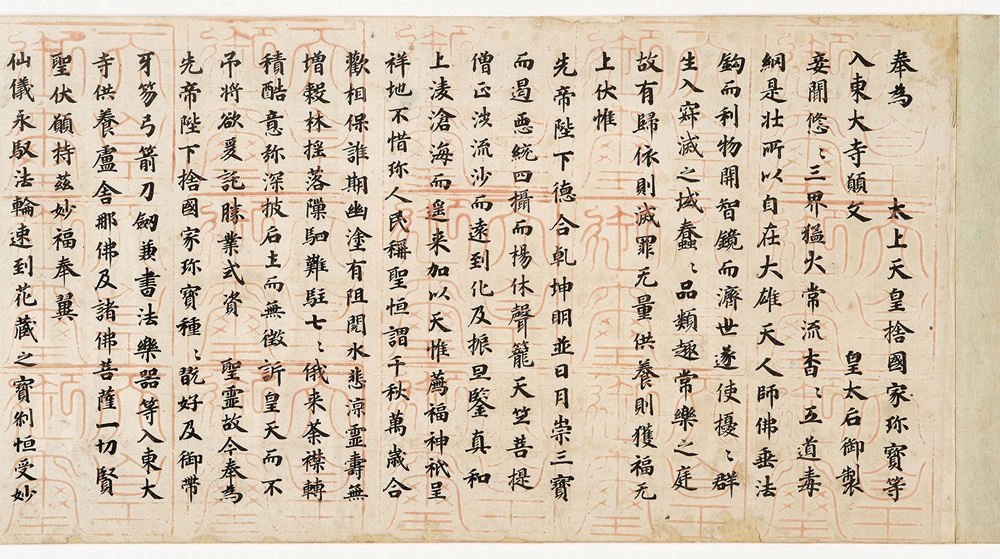 奉為　太上天皇捨國家珎寶等
入東大寺願文　皇太后御製
妾聞悠〻三界猛火常流杳〻五道毒
網是壮所以自在大雄天人師佛垂法
鈎而利物開智鏡而濟世遂使擾〻群
生入寂滅之域蠢〻品類趣常樂之庭
故有歸依則滅罪无量供養則獲福无
上伏惟
先帝陛下德合乾坤明並日月崇三寶
而遏惡統四攝而楊休聲籠天竺菩提
僧正渉流沙而遠到化及振旦鑒真和
上淩滄海而遥来加以天惟薦福神祇呈
祥地不惜珎人民稱聖恒謂千秋萬歳合
歡相保誰期幽塗有阻閱水悲涼靈壽無
増穀林揺落隟駟難駐七〻俄来荼襟轉
積酷意弥深披后土而無徴訴皇天而不
弔将欲爰託勝業式資　聖靈故今奉為
先帝陛下捨國家珎寶種〻翫好及御帶
牙笏弓箭刀劒兼書法樂器等入東大
寺供養盧舍那佛及諸佛菩薩一切賢
聖伏願持茲妙福奉翼
仙儀永馭法輪速到花蔵之寳刹恒受妙